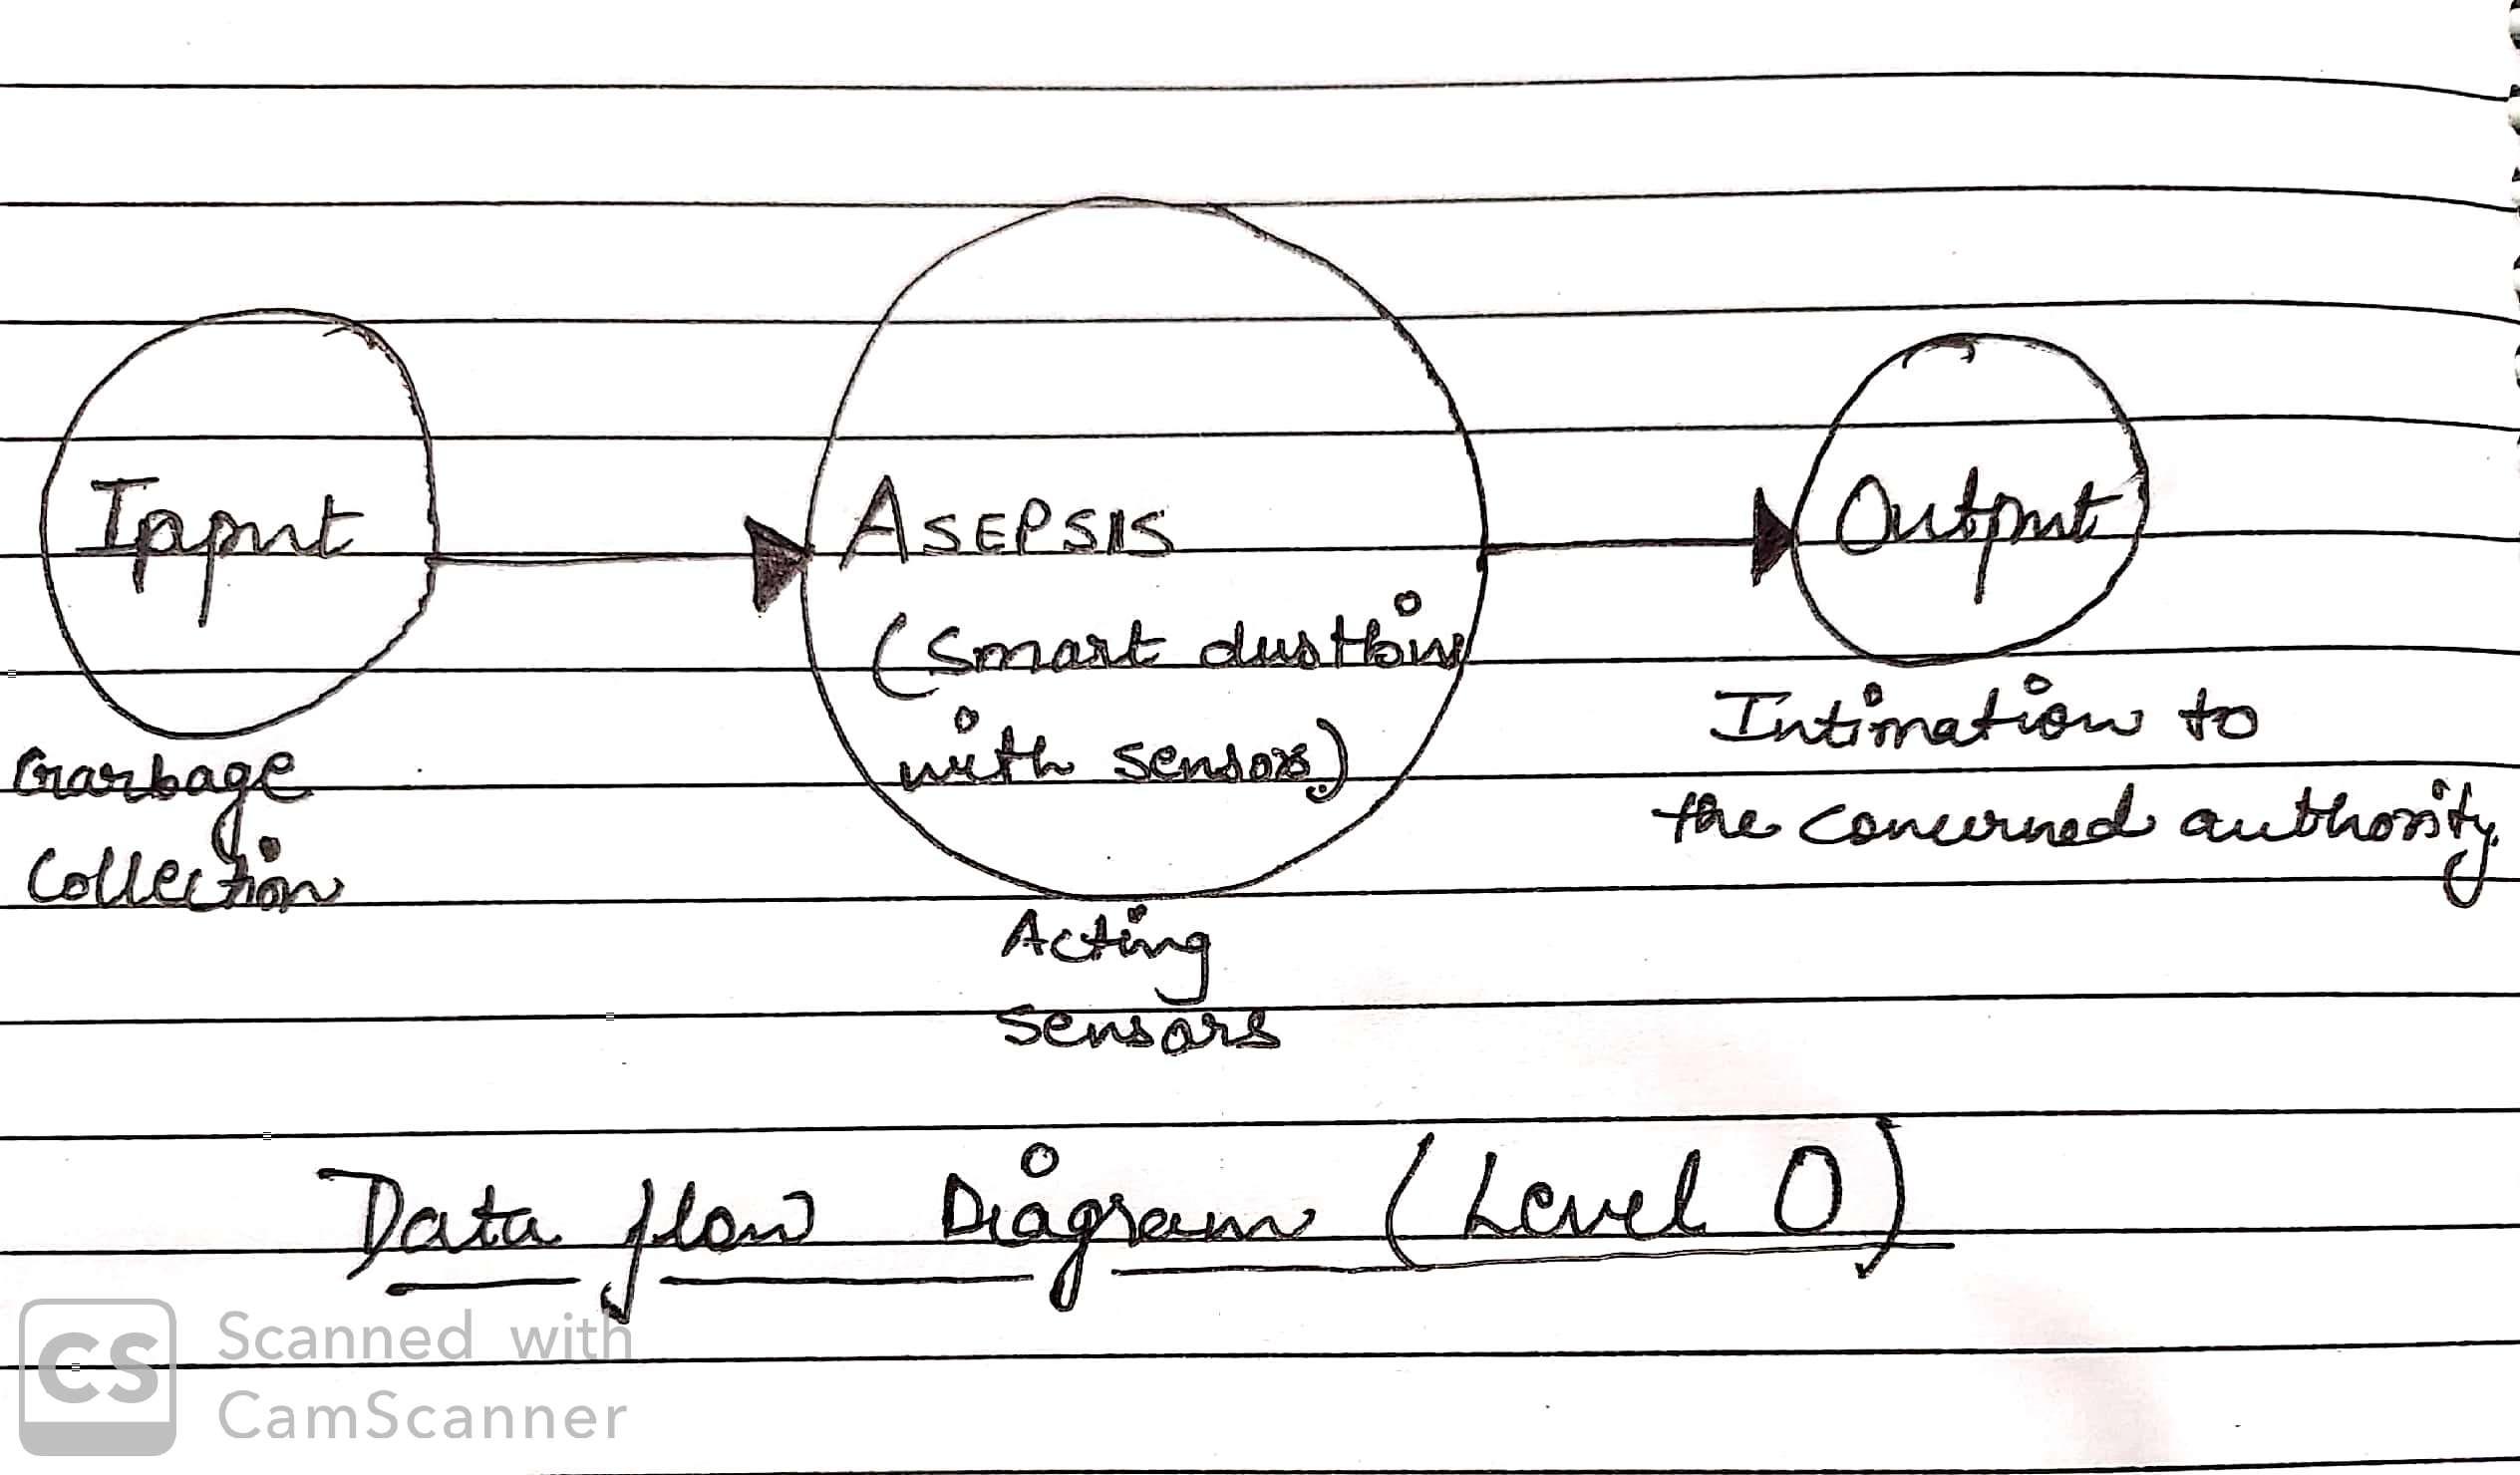 Input
Garbage
Collection
ASEPSIS
(Smart dustbin
with sensors)
Acting
Sensors
Output
Intimation to
the concerned authority
Data flow Diagram (Level 0)
CS
Scanned with
CamScanner